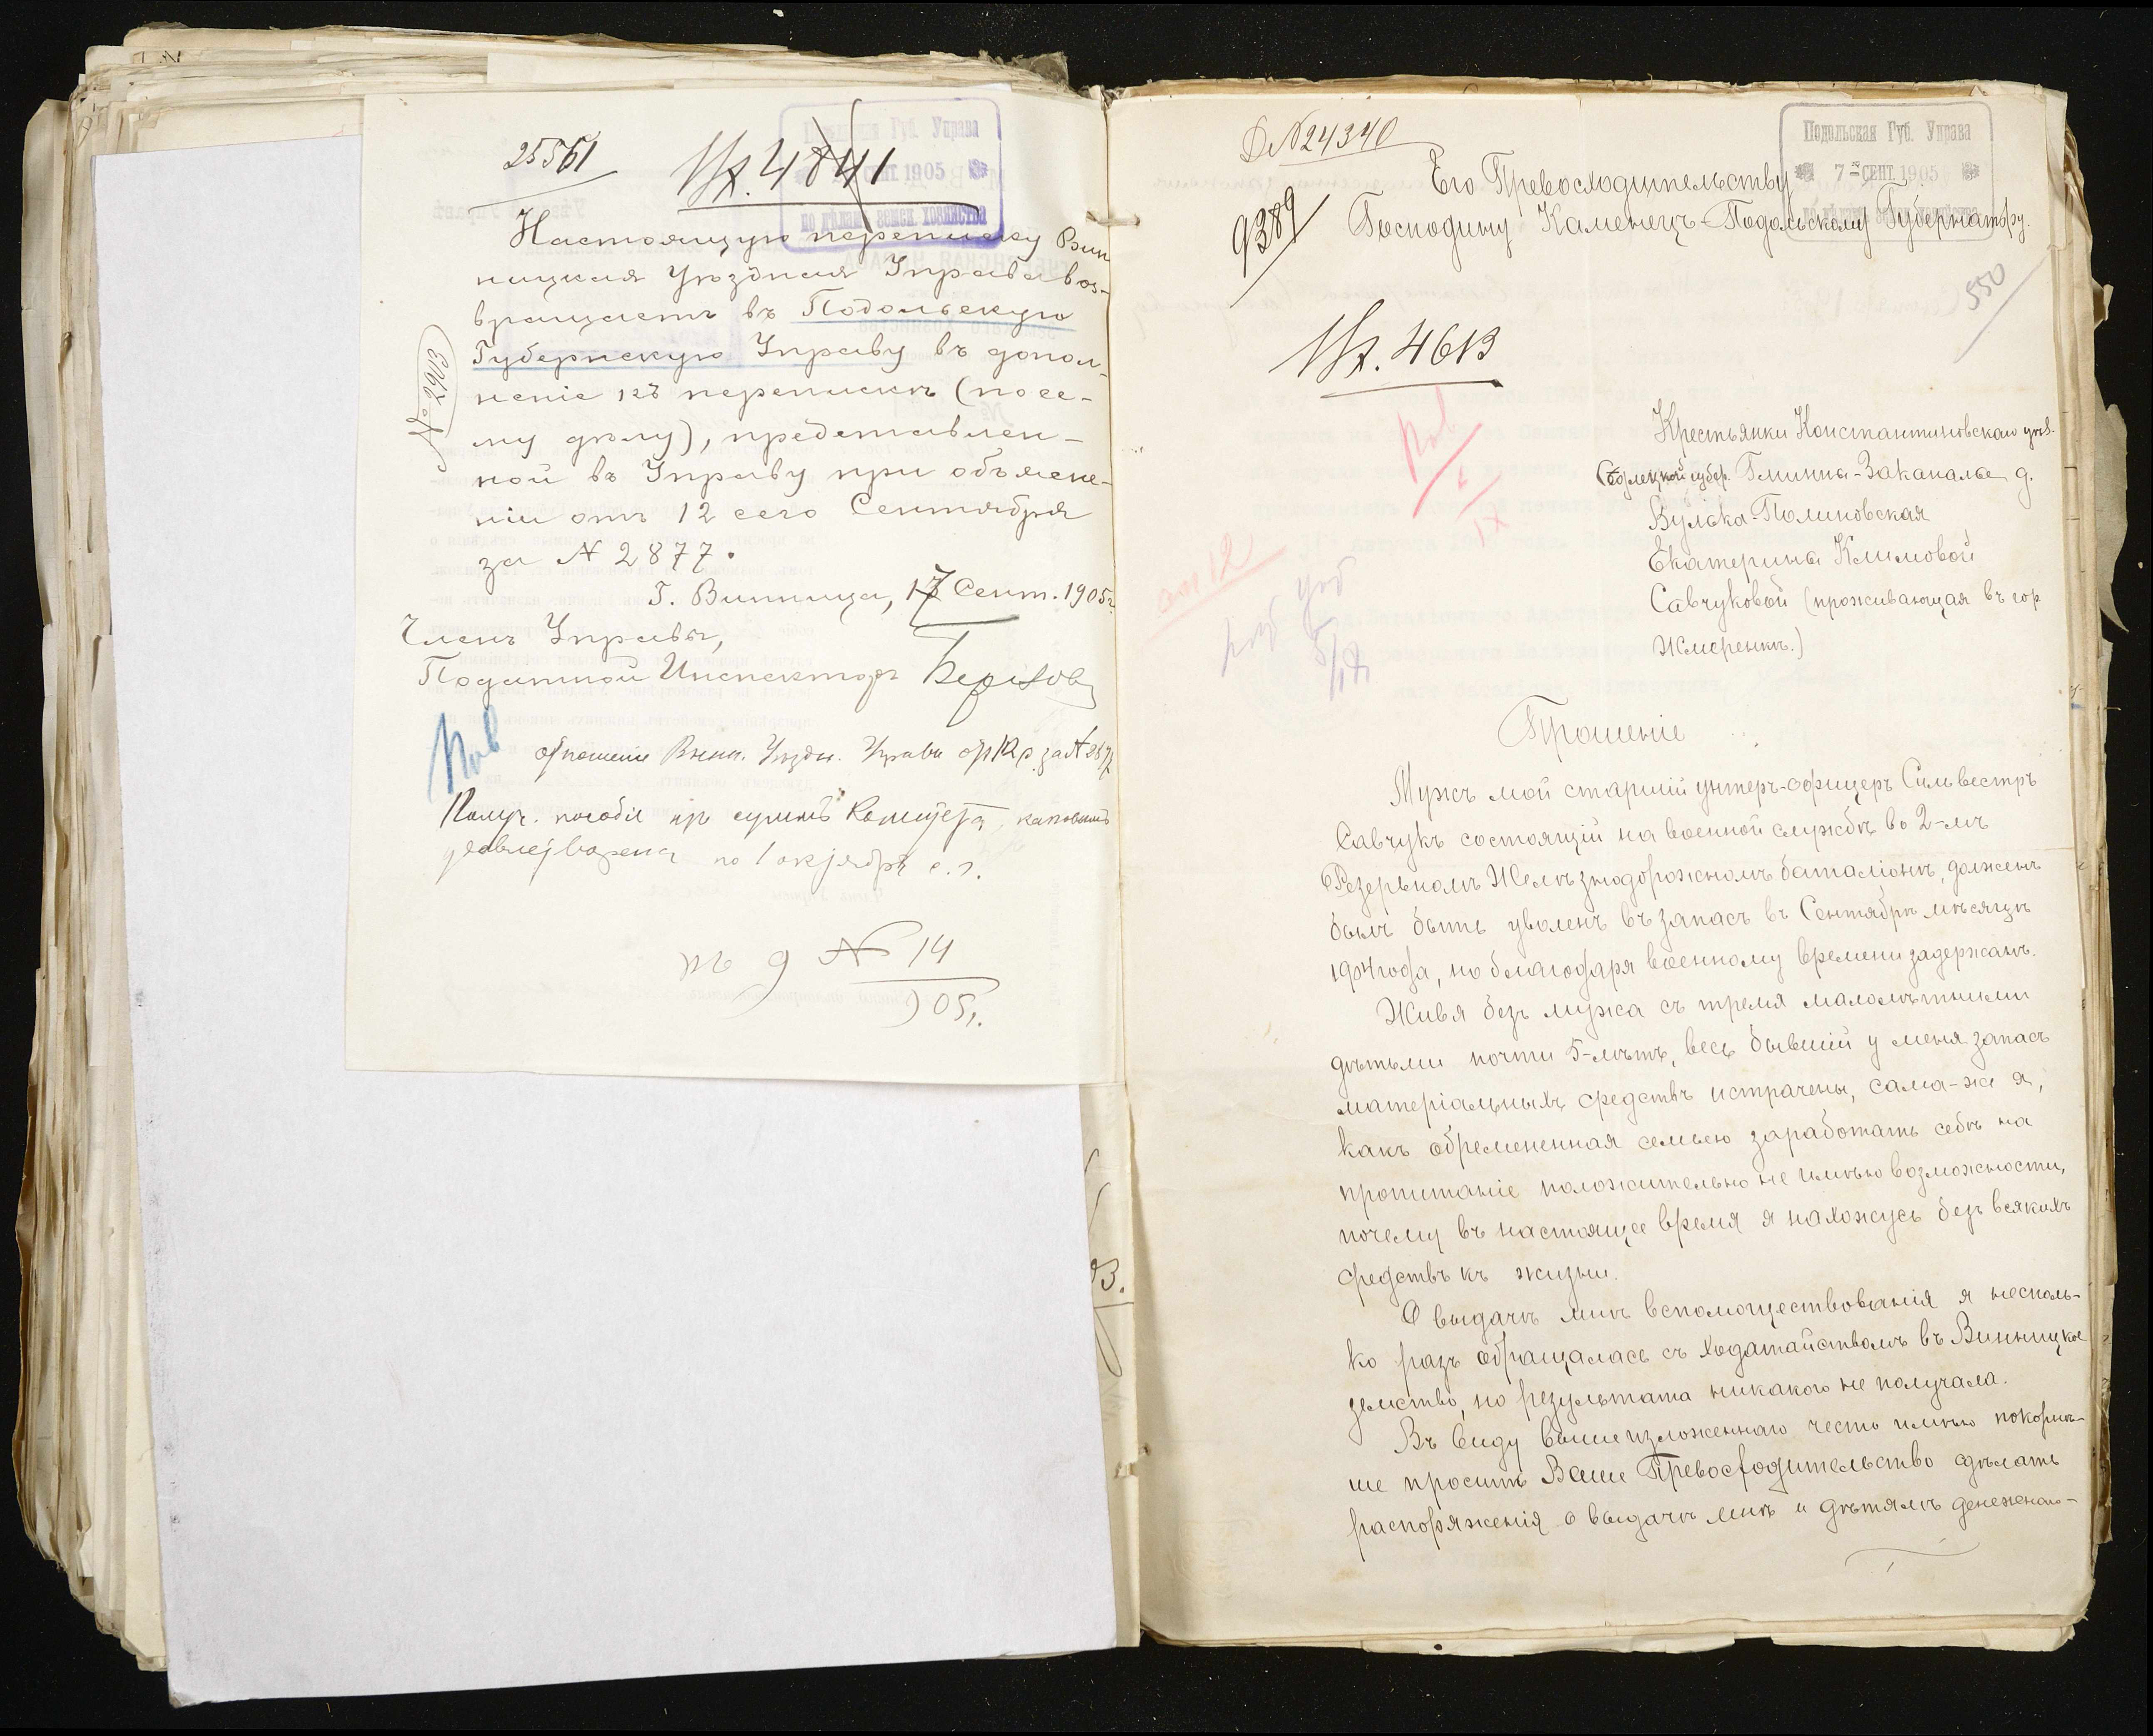 25561
Пл. 4841
Подольская Губ. Управа
СЕНТ. 1905
по дѣламъ земск. хозяйства
Настоящую переписку Вин
ницкая Уѣздная Управа воз-
вращаетъ въ Подольскую
Губернскую Управу въ допол-
неніе къ перепискѣ (по се-
му дѣлу), представлен-
ной въ Управу при объясне-
ніи отъ 12 сего Сентября
за № 2877.
Г. Винница, 17 Сент. 1905 г.
Членъ Управы,
Податной Инспекторъ
отношеніе Винн. Уѣздн. Управы от 12 с. за № 2877
Получ. пособіе изъ суммъ Комитета, каковымъ
удовлетворена по 1 октября с. г.
къ д № 14
905 г.
№ 3162
№ 24340
9389
Подольская Губ. Управа
7 СЕНТ. 1905
Его Превосходительству
Господину Каменецъ-Подольскому Губернатору.
550
Пл. 4613
Крестьянки Константиновскаго уѣз.
Сѣдлецкой губер. Гмины-Закапалье д.
Вулька-Полиновская
Екатерины Климовой
Савчуковой (проживающая въ гор
Жмеренкѣ.)
Прошеніе
Мужъ мой старшій унтеръ-офицеръ Сильвестръ
Савчукъ состоящій на военной службѣ во 2-мъ
Резервномъ Желѣзнодорожномъ баталіонѣ, долженъ
былъ быть уволенъ въ запасъ въ Сентябрѣ мѣсяцѣ
1904 года, но благодаря военному времени задержанъ.
Живя безъ мужа съ тремя малолѣтними
дѣтьми почти 5-лѣтъ, весь бывшій у меня запасъ
матеріальныхъ средствъ истрачены, сама-же я,
какъ обремененная семьею заработать себѣ на
пропитаніе положительно не имѣю возможности,
почему въ настоящее время я нахожусь безъ всякихъ
средствъ къ жизни.
О выдачѣ мнѣ вспомоществованія я несколь-
ко разъ обращалась съ ходатайствомъ въ Винницкое
земство, но результата никакого не получала.
Въ виду вышеизложеннаго честь имѣю покорнѣ-
ше просить Ваше Превосходительство сдѣлать
распоряженія о выдачѣ мнѣ и дѣтямъ денежнаго-